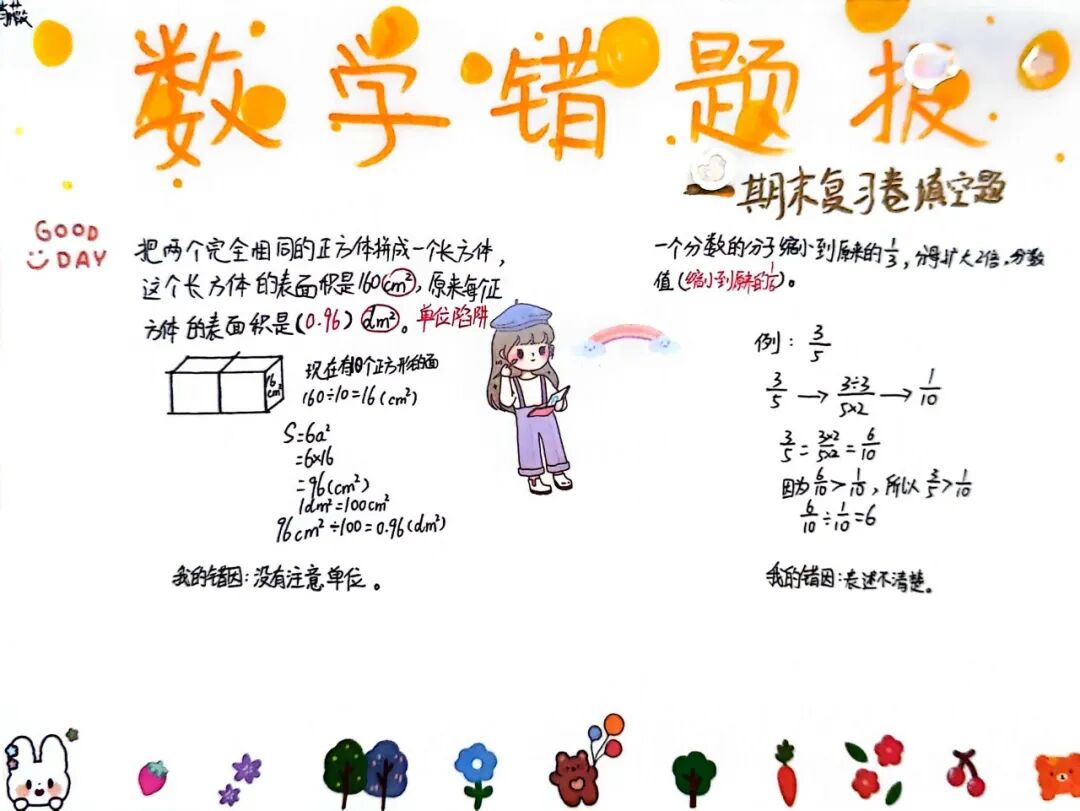 数学错题报
期末复习卷填空题
GOOD
DAY
把两个完全相同的正方体拼成一个长方体,
这个长方体的表面积是160cm²,原来每个正
方体的表面积是(0.96)dm²。单位陷阱
现在有10个正方形的面
160÷10=16(cm²)
16
cm²
S=6a²
=6×16
=96(cm²)
1dm²=100cm²
96cm²÷100=0.96(dm²)
我的错因:没有注意单位。
一个分数的分子缩小到原来的1/3,分母扩大2倍,分数
值(缩小到原来的1/6)。
例:3/5
3/5→3÷3/5×2→1/10
3/5=3×2/5×2=6/10
因为6/10>1/10,所以3/5>1/10
6/10÷1/10=6
我的错因:表述不清楚。